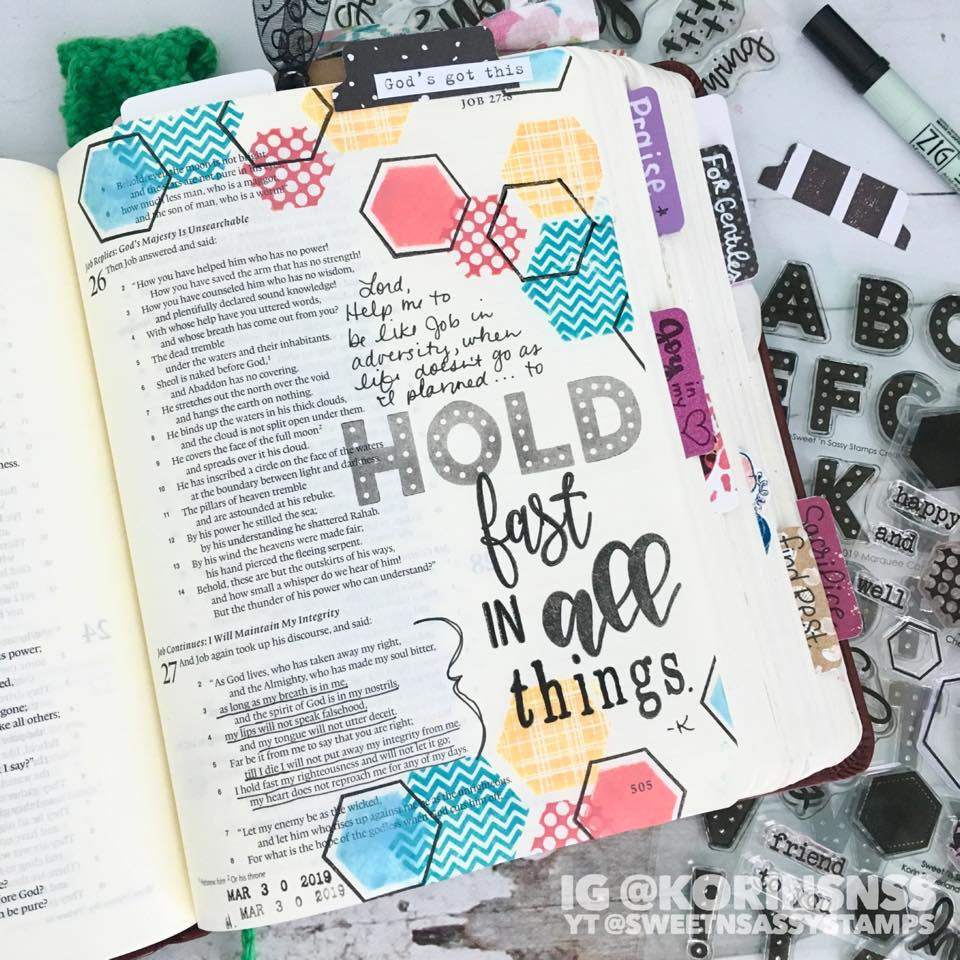 God's got this
JOB 27:8
Behold, even the moon is not bright,
and the stars are not pure in his eyes;
6 how much less man, who is a maggot,
and the son of man, who is a worm!"
Job Replies: God's Majesty Is Unsearchable
26 Then Job answered and said:
2 "How you have helped him who has no power!
How you have saved the arm that has no strength!
3 How you have counseled him who has no wisdom,
and plentifully declared sound knowledge!
4 With whose help have you uttered words,
and whose breath has come out from you?
5 The dead tremble
under the waters and their inhabitants.
6 Sheol is naked before God,1
and Abaddon has no covering.
7 He stretches out the north over the void
and hangs the earth on nothing.
8 He binds up the waters in his thick clouds,
and the cloud is not split open under them.
9 He covers the face of the full moon2
and spreads over it his cloud.
10 He has inscribed a circle on the face of the waters
at the boundary between light and darkness.
11 The pillars of heaven tremble
and are astounded at his rebuke.
12 By his power he stilled the sea;
by his understanding he shattered Rahab.
13 By his wind the heavens were made fair;
his hand pierced the fleeing serpent.
14 Behold, these are but the outskirts of his ways,
and how small a whisper do we hear of him!
But the thunder of his power who can understand?"
Job Continues: I Will Maintain My Integrity
27 And Job again took up his discourse, and said:
2 "As God lives, who has taken away my right,
and the Almighty, who has made my soul bitter,
3 as long as my breath is in me,
and the spirit of God is in my nostrils,
4 my lips will not speak falsehood,
and my tongue will not utter deceit.
5 Far be it from me to say that you are right;
till I die I will not put away my integrity from me.
6 I hold fast my righteousness and will not let it go;
my heart does not reproach me for any of my days.
7 "Let my enemy be as the wicked,
and let him who rises up against me be as the unrighteous.
8 For what is the hope of the godless when God cuts him off,
him 2 Or his throne
MAR 30 2019
MAR 30 2019
Lord,
Help me to
be like Job in
adversity, when
life doesn't go as
I planned... to
HOLD
fast
IN all
things.
-K
505
Praise
For Gentiles
Joy
in
my
Sacrifice
find rest
ZIG
A B C
F G
Sweet 'n Sassy Stamps
K
2019 Marquee
happy
and
well
friend
to you
24
s power;
gone;
ke all others;
I say?"
ness.
fore God?
n be pure?
IG @KORINSNSS
YT @SWEETNSASSYSTAMPS